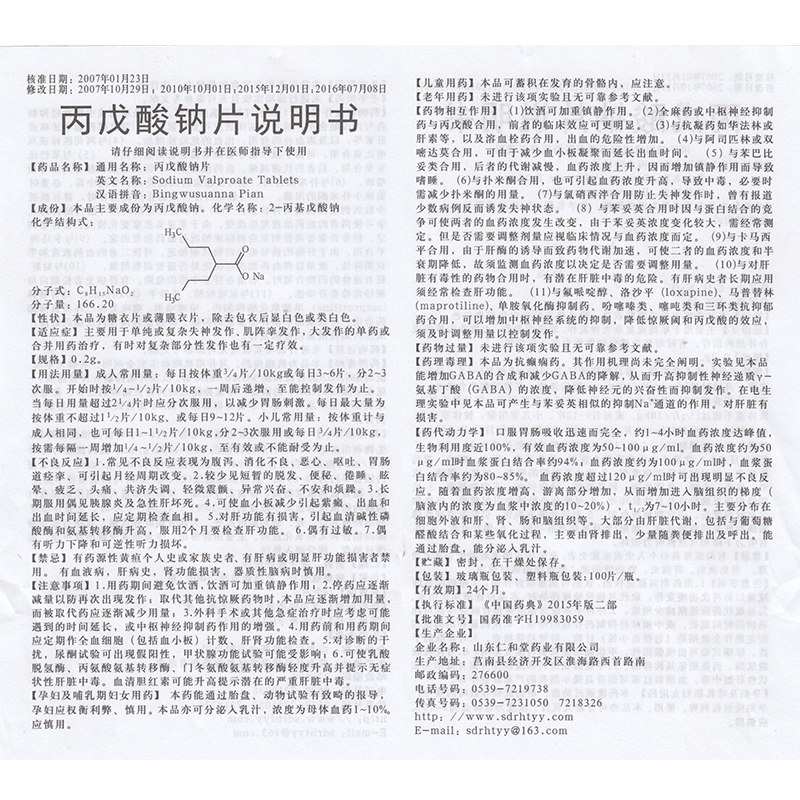 核准日期：2007年01月23日
修改日期：2007年10月29日；2010年10月01日；2015年12月01日；2016年07月08日
丙戊酸钠片说明书
请仔细阅读说明书并在医师指导下使用
【药品名称】通用名称：丙戊酸钠片
英文名称：Sodium Valproate Tablets
汉语拼音：Bingwusuanna Pian
【成份】本品主要成份为丙戊酸钠。化学名称：2-丙基戊酸钠
化学结构式：
H₃C
O
O Na
H₃C
分子式：C₈H₁₅NaO₂
分子量：166.20
【性状】本品为糖衣片或薄膜衣片，除去包衣后显白色或类白色。
【适应症】主要用于单纯或复杂失神发作、肌阵挛发作，大发作的单药或
合并用药治疗，有时对复杂部分性发作也有一定疗效。
【规格】0.2g。
【用法用量】成人常用量：每日按体重3/4片/10kg或每日3~6片，分2~3
次服。开始时按1/4~1/2片/10kg，一周后递增，至能控制发作为止。
当每日用量超过2 1/4片时应分次服用，以减少胃肠刺激。每日最大量为
按体重不超过1 1/2片/10kg、或每日9~12片。小儿常用量：按体重计与
成人相同，也可每日1~1 1/2片/10kg，分2~3次服用或每日3/4片/10kg，
按需每隔一周增加1/4~1/2片/10kg，至有效或不能耐受为止。
【不良反应】1.常见不良反应表现为腹泻、消化不良、恶心、呕吐、胃肠
道痉挛、可引起月经周期改变。2.较少见短暂的脱发、便秘、倦睡、眩
晕、疲乏、头痛、共济失调、轻微震颤、异常兴奋、不安和烦躁。3.长
期服用偶见胰腺炎及急性肝坏死。4.可使血小板减少引起紫癜、出血和
出血时间延长，应定期检查血相。5.对肝功能有损害，引起血清碱性磷
酸酶和氨基转移酶升高，服用2个月要检查肝功能。6.偶有过敏。7.偶
有听力下降和可逆性听力损坏。
【禁忌】有药源性黄疸个人史或家族史者、有肝病或明显肝功能损害者禁
用。有血液病，肝病史，肾功能损害。器质性脑病时慎用。
【注意事项】1.用药期间避免饮酒，饮酒可加重镇静作用；2.停药应逐渐
减量以防再次出现发作；取代其他抗惊厥药物时，本品应逐渐增加用量，
而被取代药应逐渐减少用量；3.外科手术或其他急症治疗时应考虑可能
遇到的时间延长，或中枢神经抑制药作用的增强。4.用药前和用药期间
应定期作全血细胞（包括血小板）计数、肝肾功能检查。5.对诊断的干
扰，尿酮试验可出现假阳性，甲状腺功能试验可能受影响；6.可使乳酸
脱氢酶、丙氨酸氨基转移酶、门冬氨酸氨基转移酶轻度升高并提示无症状
性肝脏中毒。血清胆红素可能升高提示潜在的严重肝脏中毒。
【孕妇及哺乳期妇女用药】本药能通过胎盘、动物试验有致畸的报导，
孕妇应权衡利弊、慎用。本品亦可分泌入乳汁，浓度为母体血药1~10%。
应慎用。
【儿童用药】本品可蓄积在发育的骨骼内，应注意。
【老年用药】未进行该项实验且无可靠参考文献。
【药物相互作用】(1)饮酒可加重镇静作用。(2)全麻药或中枢神经抑制
药与丙戊酸合用，前者的临床效应可更明显。(3)与抗凝药如华法林或
肝素等，以及溶血栓药合用，出血的危险性增加。(4)与阿司匹林或双
嘧达莫合用，可由于减少血小板凝聚而延长出血时间。(5)与苯巴比
妥类合用，后者的代谢减慢，血药浓度上升，因而增加镇静作用而导致
嗜睡。(6)与扑米酮合用，也可引起血药浓度升高，导致中毒，必要时
需减少扑米酮的用量。(7)与氯硝西泮合用防止失神发作时，曾有报道
少数病例反而诱发失神状态。(8)与苯妥英合用时因与蛋白结合的竞
争可使两者的血药浓度发生改变，由于苯妥英浓度变化较大，需经常测
定。但是否需要调整剂量应视临床情况与血药浓度而定。(9)与卡马西
平合用，由于肝酶的诱导而致药物代谢加速，可使二者的血药浓度和半
衰期降低，故须监测血药浓度以决定是否需要调整用量。(10)与对肝
脏有毒性的药物合用时，有潜在肝脏中毒的危险。有肝病史者长期应用
须经常检查肝功能。(11)与氟哌啶醇、洛沙平(loxapine)、马普替林
(maprotiline)、单胺氧化酶抑制药、吩噻嗪类、噻吨类和三环类抗抑郁
药合用，可以增加中枢神经系统的抑制，降低惊厥阈和丙戊酸的效应，
须及时调整用量以控制发作。
【药物过量】未进行该项实验且无可靠参考文献。
【药理毒理】本品为抗癫痫药。其作用机理尚未完全阐明。实验见本品
能增加GABA的合成和减少GABA的降解，从而升高抑制性神经递质γ-
氨基丁酸（GABA）的浓度，降低神经元的兴奋性而抑制发作。在电生
理实验中见本品可产生与苯妥英相似的抑制Na⁺通道的作用。对肝脏有
损害。
【药代动力学】口服胃肠吸收迅速而完全，约1~4小时血药浓度达峰值，
生物利用度近100%，有效血药浓度为50~100μg/ml。血药浓度约为50
μg/ml时血浆蛋白结合率约94%；血药浓度约为100μg/ml时，血浆蛋
白结合率约为80~85%。血药浓度超过120μg/ml时可出现明显不良反
应。随着血药浓度增高，游离部分增加，从而增加进入脑组织的梯度（
脑液内的浓度为血浆中浓度的10~20%），t1/2为7~10小时。主要分布在
细胞外液和肝、肾、肠和脑组织等。大部分由肝脏代谢，包括与葡萄糖
醛酸结合和某些氧化过程，主要由肾排出，少量随粪便排出及呼出。能
通过胎盘，能分泌入乳汁。
【贮藏】密封，在干燥处保存。
【包装】玻璃瓶包装、塑料瓶包装：100片/瓶。
【有效期】24个月。
【执行标准】《中国药典》2015年版二部
【批准文号】国药准字H19983059
【生产企业】
企业名称：山东仁和堂药业有限公司
生产地址：莒南县经济开发区淮海路西首路南
邮政编码：276600
电话号码：0539-7219738
传真号码：0539-7231050 7218326
http://www.sdrhtyy.com
E-mail：sdrhtyy@163.com